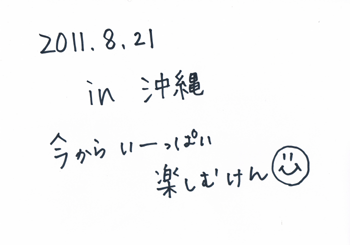 2011.8.21
in 沖縄
今からいーっぱい
楽しむけん